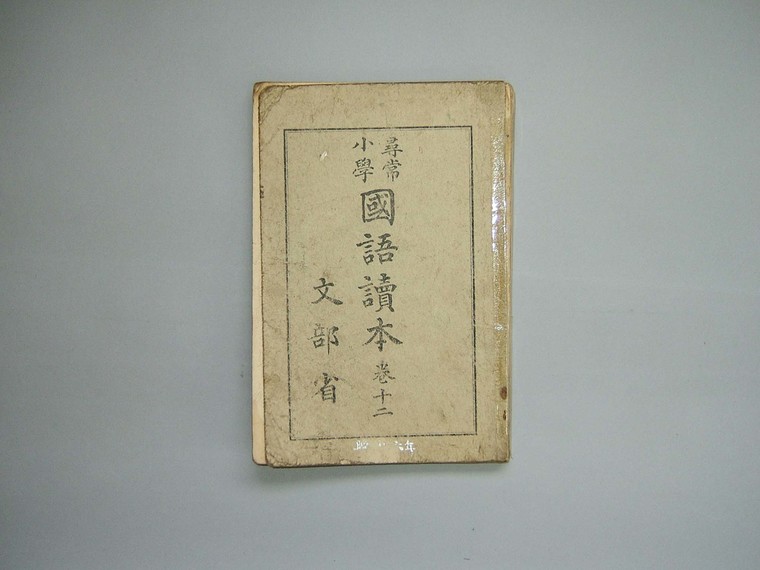 尋常
小學
國語讀本 卷十二
文部省